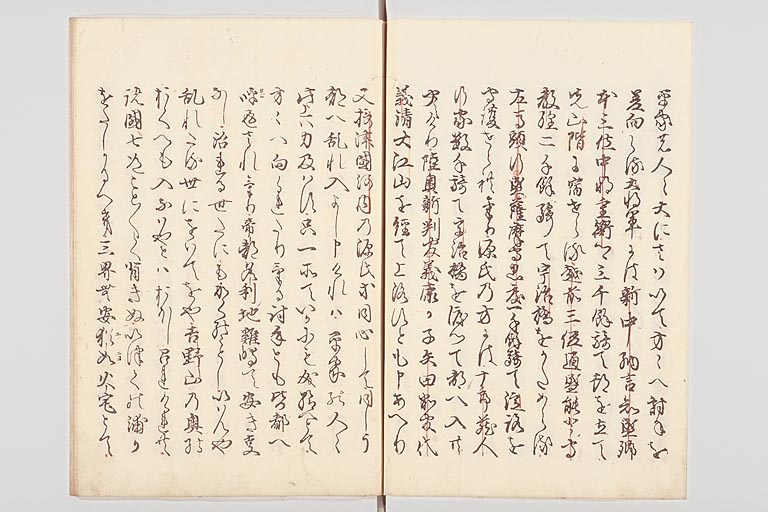 平家の人々大にさわいて方々へ討手を
差向らる大将軍には新中納言知盛卿
本三位中将重衡卿三千餘騎て都を立て
先山階に宿せらる越前三位通盛能登守
教経二千餘騎て宇治橋をかためらる
左馬頭行盛薩摩守忠度一千餘騎て淀路を
守護せられけり源氏の方には十郎蔵人
行家数千騎て宇治橋を渡つて都へ入共
聞えけり陸奥新判官義康か子矢田判官代
義清大江山を経て上洛すとも申あへり
又摂津國河内の源氏等同心して同しう
都へ乱れ入よし申けれは平家の人々
此上は力及はす只一所ていかにも成給へとて
方々へ向られたりける討手とも皆都へ
呼返されけり帝都名利地雞鳴て安き事
なし治れる世たにもかくのことしいはんや
乱れたる世にをいてをや吉野山の奥の
おくへも入なはやとはおほしけれ共
諸國七道こと〱く背きぬいつくの浦か
をたしかるへき三界無安猶如火宅とて